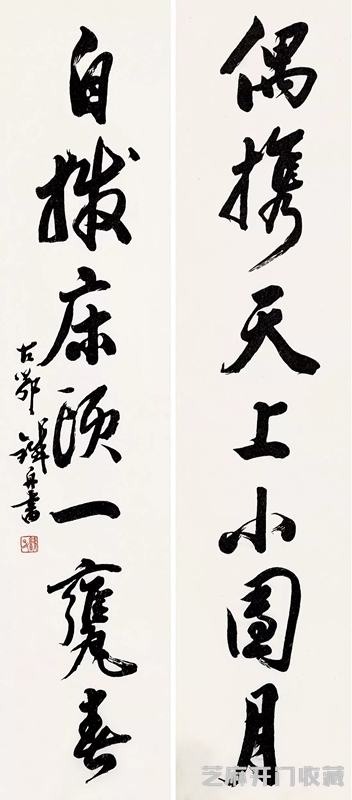 偶携天上小團月
自撥床頭一甕春
古鄂舟書
芝麻开门收藏